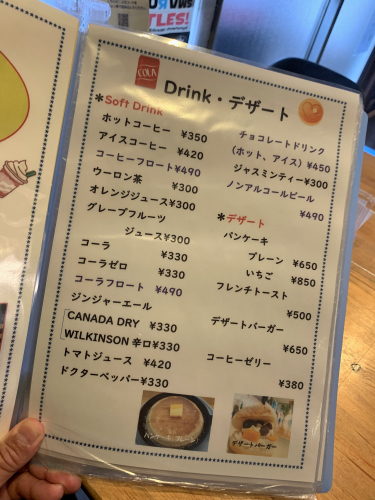 TLES!
COLA
Drink・デザート
*Soft Drink
ホットコーヒー ¥350
アイスコーヒー ¥420
コーヒーフロート¥490
ウーロン茶 ¥300
オレンジジュース¥300
グレープフルーツ
ジュース¥300
コーラ ¥330
コーラゼロ ¥330
コーラフロート ¥490
ジンジャーエール
CANADA DRY ¥330
WILKINSON 辛口¥330
トマトジュース ¥420
ドクターペッパー¥330
チョコレートドリンク
(ホット、アイス) ¥450
ジャスミンティー¥300
ノンアルコールビール
¥490
*デザート
パンケーキ
プレーン ¥650
いちご ¥850
フレンチトースト
¥500
デザートバーガー
¥650
コーヒーゼリー
¥380
デザートバーガー